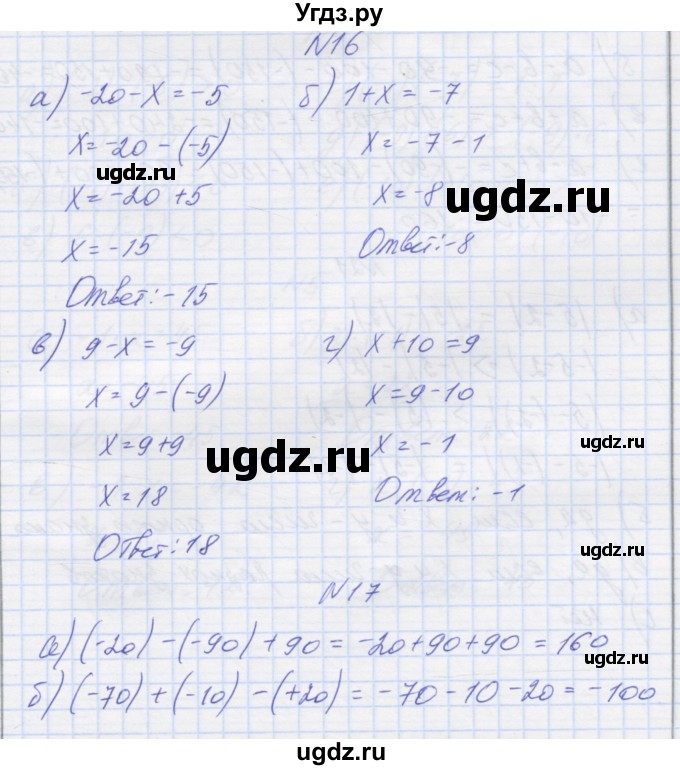 Угдз.ру
N16
а) -20-x=-5
x=-20-(-5)
x=-20+5
x=-15
Ответ:-15
б) 1+x=-7
x=-7-1
x=-8
Ответ:-8
в) 9-x=-9
x=9-(-9)
x=9+9
x=18
Ответ:18
г) x+10=9
x=9-10
x=-1
Ответ:-1
N17
а) (-20)-(-90)+90=-20+90+90=160
б) (-70)+(-10)-(+20)=-70-10-20=-100
ugdz.ru
ugdz.ru
ugdz.ru
ugdz.ru
ugdz.ru
ugdz.ru
ugdz.ru
ugdz.ru